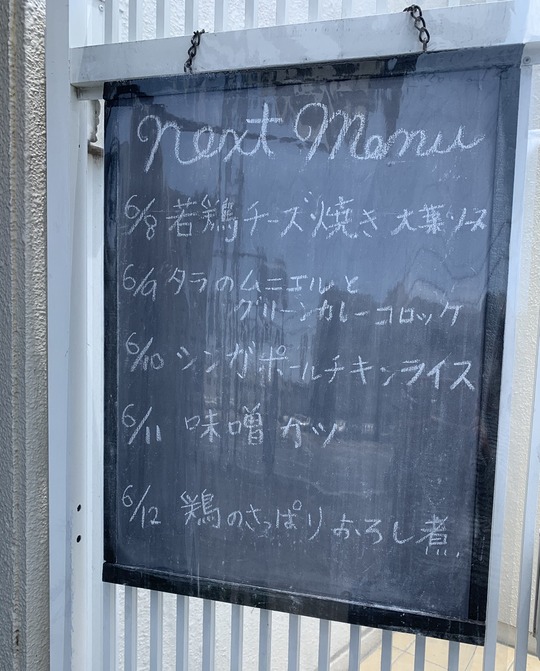 next Menu
6/8 若鶏チーズ焼き 大葉ソース
6/9 タラのムニエルと
グリーンカレーコロッケ
6/10 シンガポールチキンライス
6/11 味噌カツ
6/12 鶏のさっぱりおろし煮